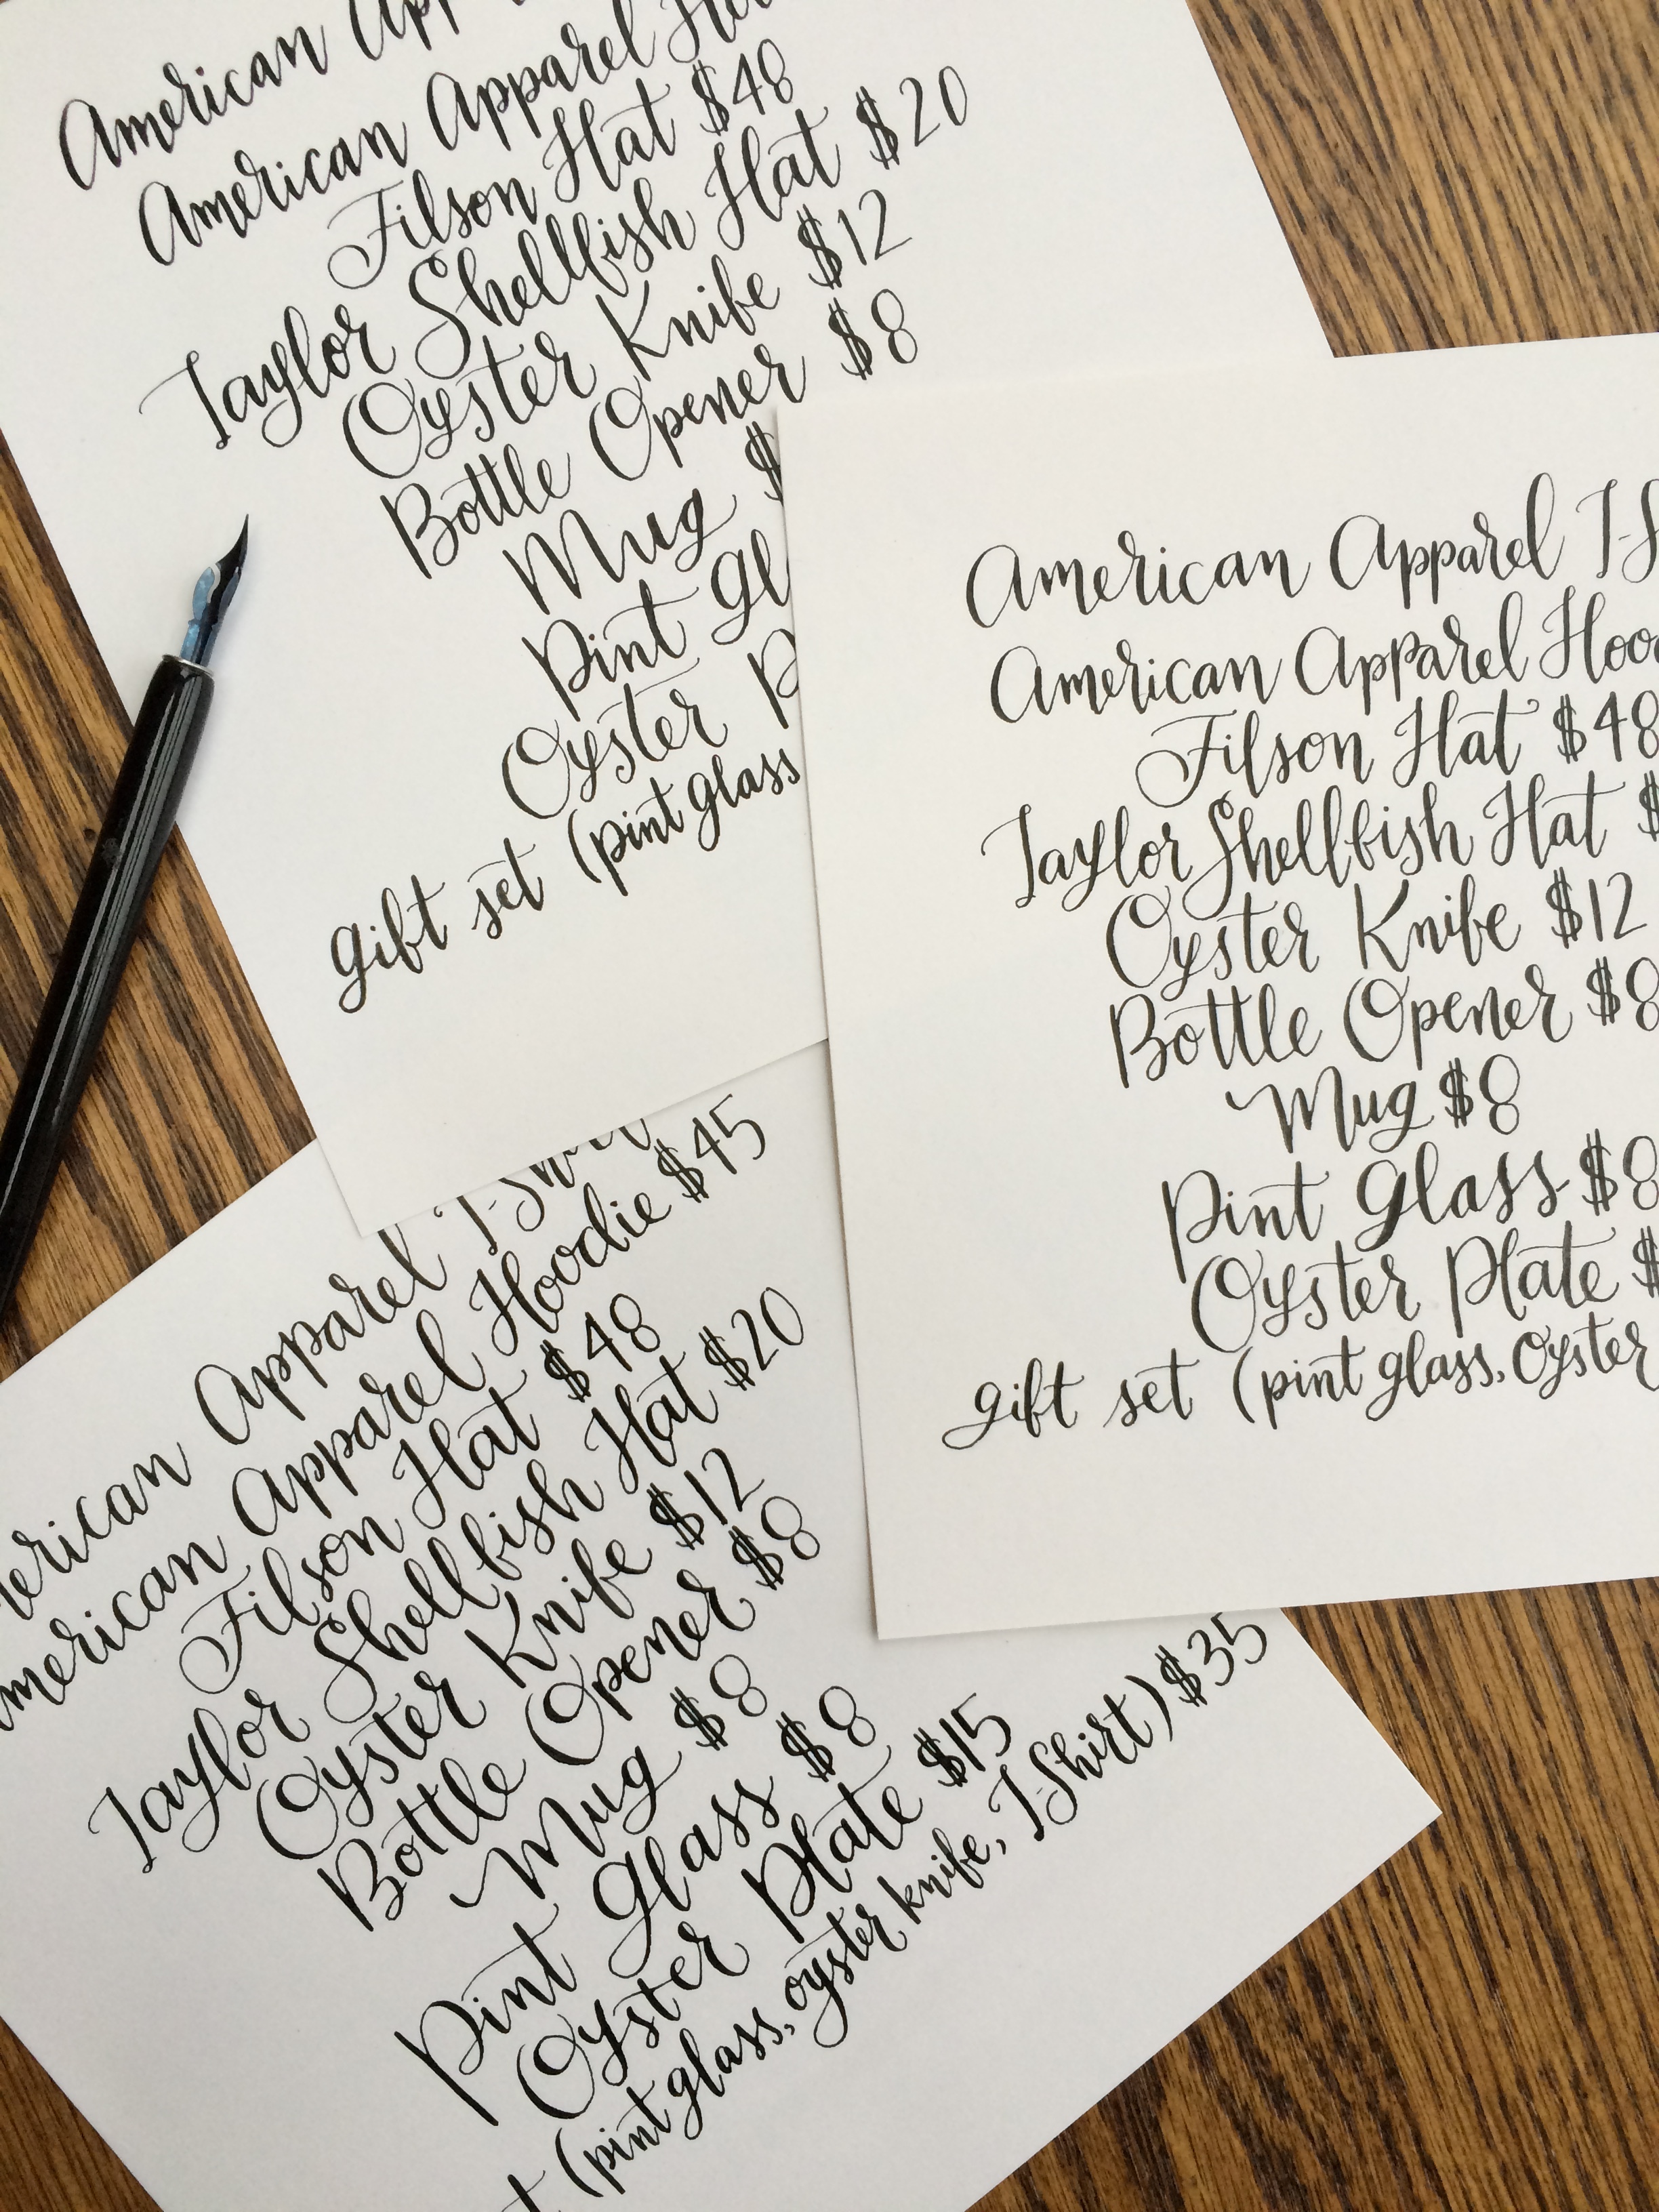 American
American Apparel
Filson Hat $48
Taylor Shellfish Hat $20
Oyster Knife $12
Bottle Opener $8
Mug $
Pint
Oyster
gift set (pint glass
American Apparel
American Apparel
Filson Hat $48
Taylor Shellfish Hat $
Oyster Knife $12
Bottle Opener $8
Mug $8
Pint Glass $8
Oyster Plate $
gift set (pint glass, oyster
Apparel T-Shirt
American Apparel Hoodie $45
Filson Hat $48
Taylor Shellfish Hat $20
Oyster Knife $12
Bottle Opener $8
Mug $8
Pint Glass $8
Oyster Plate $15
(pint glass, oyster knife, T-Shirt) $35